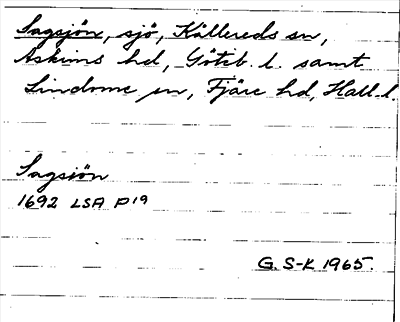 Sagsjön, sjö, Kållereds sn,
Askims hd, Göteb. l. samt
Lindome sn, Fjäre hd, Hall. l.
Sagsjön
1692 LSA P19
G. S-K 1965.